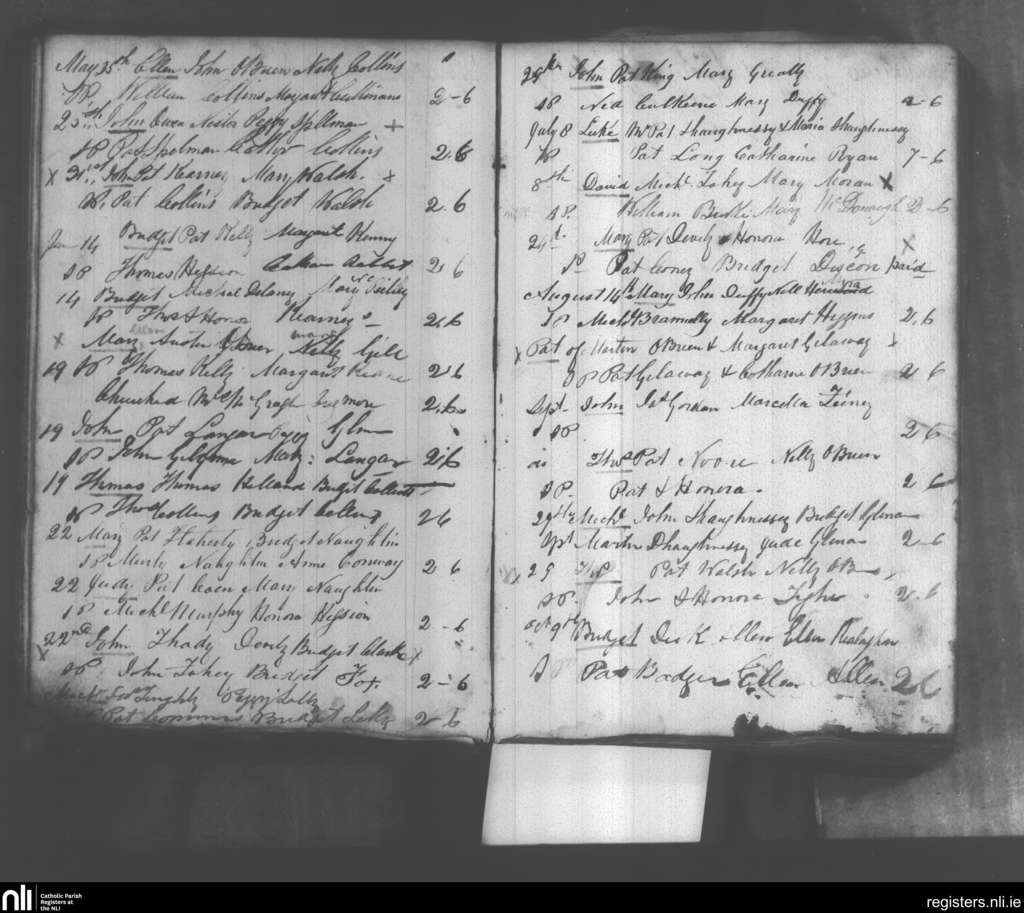 May 25th Ellen John O'Brien Nelly Collins
SP William Collins Margaret 2-6
25th John Owen Peggy Spelman +
SP Pat Spelman Collins 2.6
x 31st John Pat Kearney Mary Walsh x
SP. Pat Collins Budget Walsh 2.6
Jun 14 Budget Pat Kelly Margaret Kenny
SP Thomas Hession 2 6
14 Budget Micheal Delaney Mary
SP Thos & Honor Kearney 2.6
x Mary Ellen Austin Kelly
19 SP Thomas Kelly Margaret Keane 2 6
Churched Mrs McGragh 2.6
19 John Pat Langan Peggy Glen
SP John Mary Langan 2.6
19 Thomas Thomas Holland Budget Collins
SP Thos Collins Budget Collins 2 6
22 Mary Pat Flaherty Bridget Naughtin
SP Murty Naughtin Anne Conway 2 6
22 Judy Pat Coen Mary Naughten
SP Michl Murphy Honora Hession 2-6
x 22nd John Thady Dealy Budget Clark x
SP John Fahey Bridget Fox 2-6
Peggy Lally
Pat Commins Bridget Lally 2 6
29th John Pat King Mary Greally
SP Ned Culkeene Mary Duffy 2-6
July 8 Luke Mr Pat Shaughnessy & Maria Shaughnessy
SP Pat Long Catharine Ryan 7-6
8th David Michl Fahey Mary Moran x
SP. William Burke Mary McDonough 2-6
29th Mary Pat Dealy & Honora Hore x
SP Pat Cooney Bridget Dyscon paid
August 14th Mary John Duffy Nell
SP Michl Brannelly Margaret Higgins 2.6
x Pat of Martin O'Brien & Margaret Gilaway x
SP Pat Gilaway & Catharine O'Brien 2 6
Sept John Jas Gordan Marcella Feeney
SP 2 6
do Thos Pat Noone Nelly O'Brien
SP. Pat & Honora. 2 6
29th Michl John Shaughnessy Bridget Glena
Spt Martin Shaughnessy Jude Glena 2-6
x 29 Thos Pat Walsh Nelly OB x
SP. John & Honora Tighe 2.6
Oct 9th Budget Dick Allen Ellen
S Pat Badger Ellen Allen 2 6
nli
Catholic Parish
Registers at
the NLI
registers.nli.ie